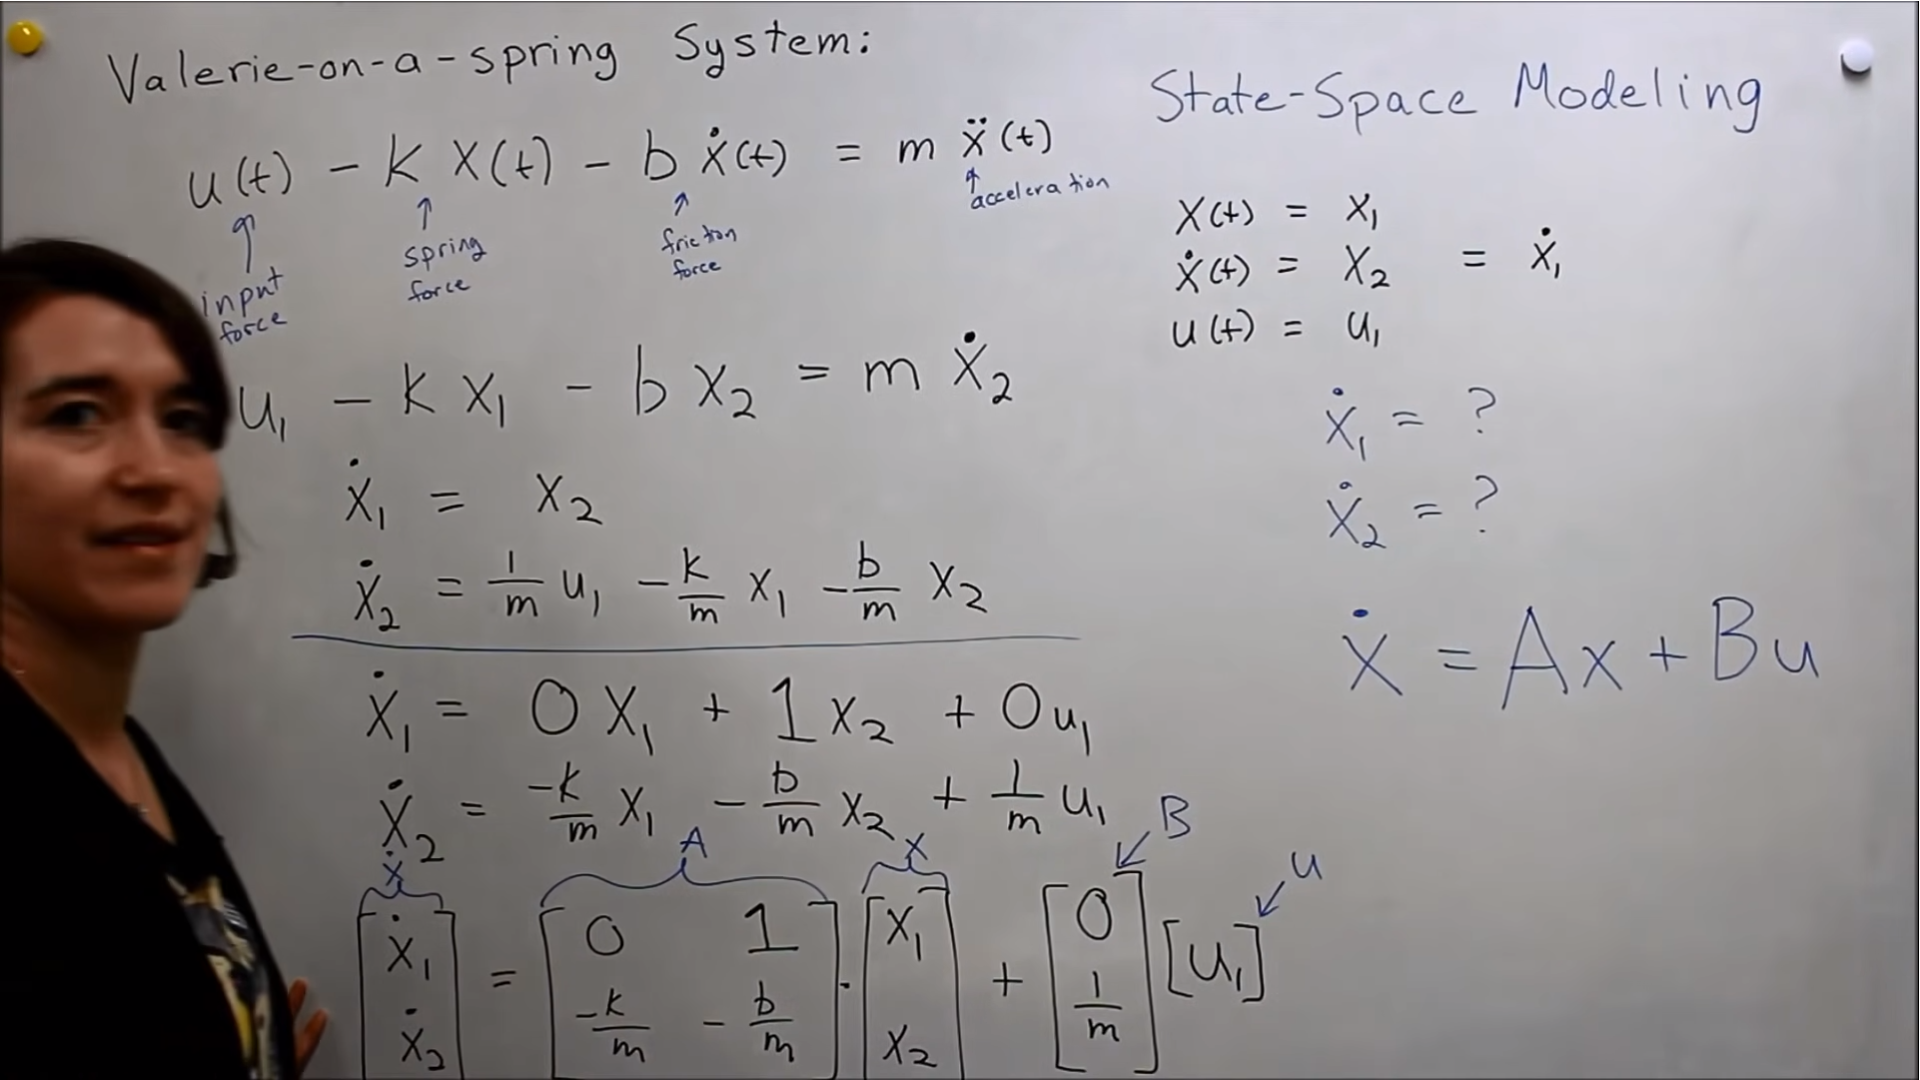 Valerie-on-a-spring System:
u(t) - K X(t) - b ẋ(t) = m ẍ(t)
↑ input force
↑ spring force
↑ friction force
↑ acceleration
u₁ - K X₁ - b X₂ = m Ẋ₂
Ẋ₁ = X₂
Ẋ₂ = 1/m u₁ - k/m X₁ - b/m X₂
Ẋ₁ = 0 X₁ + 1 X₂ + 0 u₁
Ẋ₂ = -k/m X₁ - b/m X₂ + 1/m u₁
Ẋ A X B u
[Ẋ₁ Ẋ₂] = [0 1 -k/m - b/m] · [X₁ X₂] + [0 1/m] [u₁]
State-Space Modeling
X(t) = X₁
Ẋ(t) = X₂ = Ẋ₁
u(t) = u₁
Ẋ₁ = ?
Ẋ₂ = ?
Ẋ = Ax + Bu